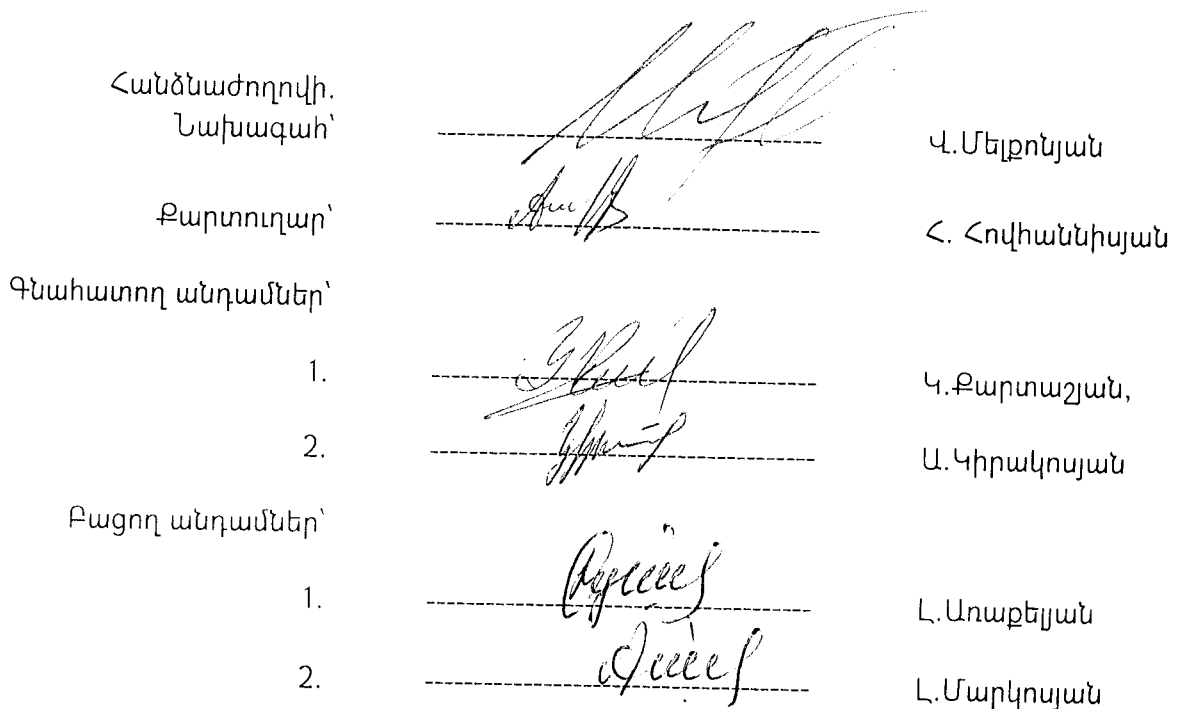 Հանձնաժողովի.
Նախագահ՝ Վ.Մելքոնյան
Քարտուղար՝ Հ. Հովհաննիսյան
Գնահատող անդամներ՝
1. Կ.Քարտաշյան,
2. Ա.Կիրակոսյան
Բացող անդամներ՝
1. Լ.Առաքելյան
2. Լ.Մարկոսյան